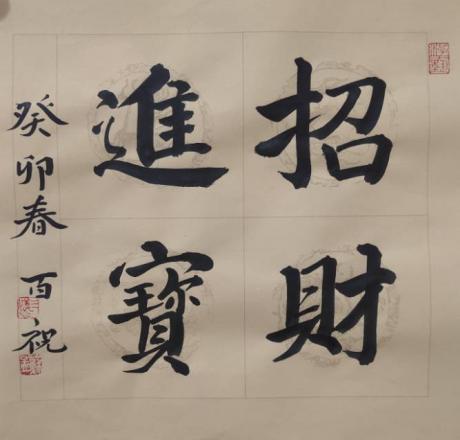 招財
進寶
癸卯春百祝